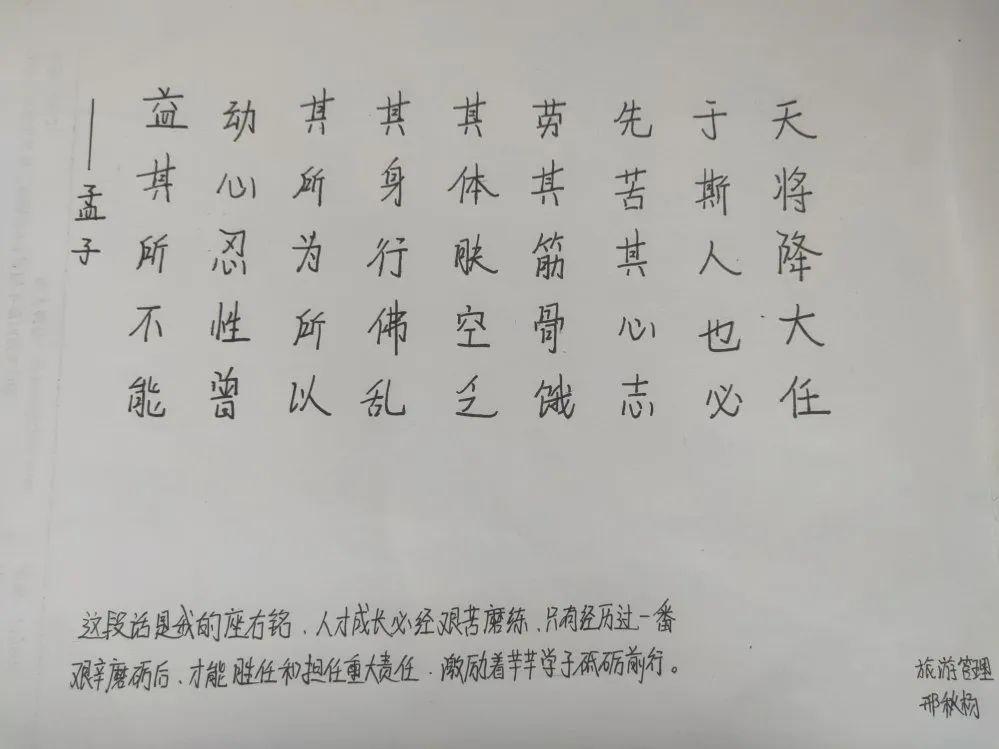 天将降大任
于斯人也必
先苦其心志
劳其筋骨饿
其体肤空乏
其身行佛乱
其所为所以
动心忍性曾
益其所不能
——孟子
这段话是我的座右铭，人才成长必经艰苦磨练，只有经历过一番
艰辛磨砺后，才能胜任和担任重大责任，激励着芊芊学子砥砺前行。
旅游管理
邢秋杨